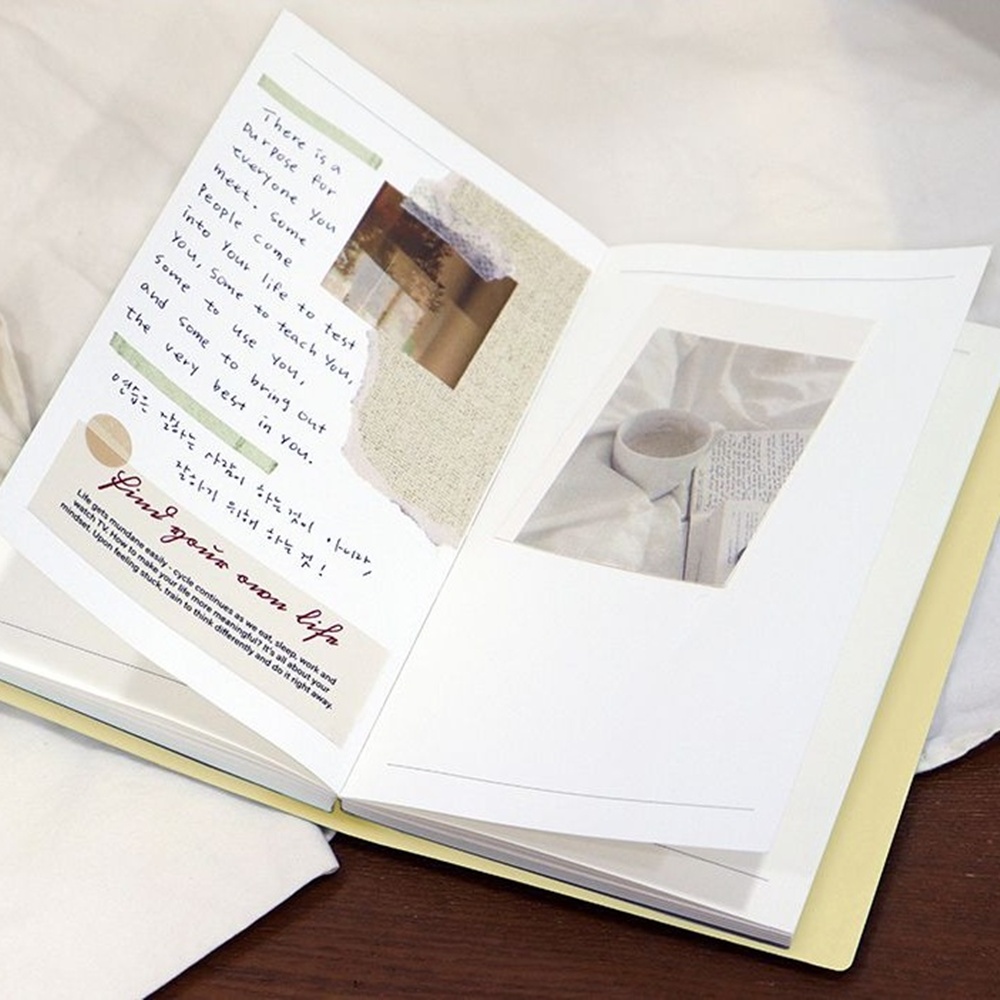 There is a
purpose for
everyone you
meet. Some
people come
into your life to test
you, some to teach you,
some to use you,
and some to bring out
the very best in you.
연습은 잘하는 사람이 하는 것이 아니라,
잘하기 위해 하는 것!
find your own life
Life gets mundane easily - cycle continues as we eat, sleep, work and
watch TV. How to make your life more meaningful? It's all about your
mindset. Upon feeling stuck, train to think differently and do it right away.